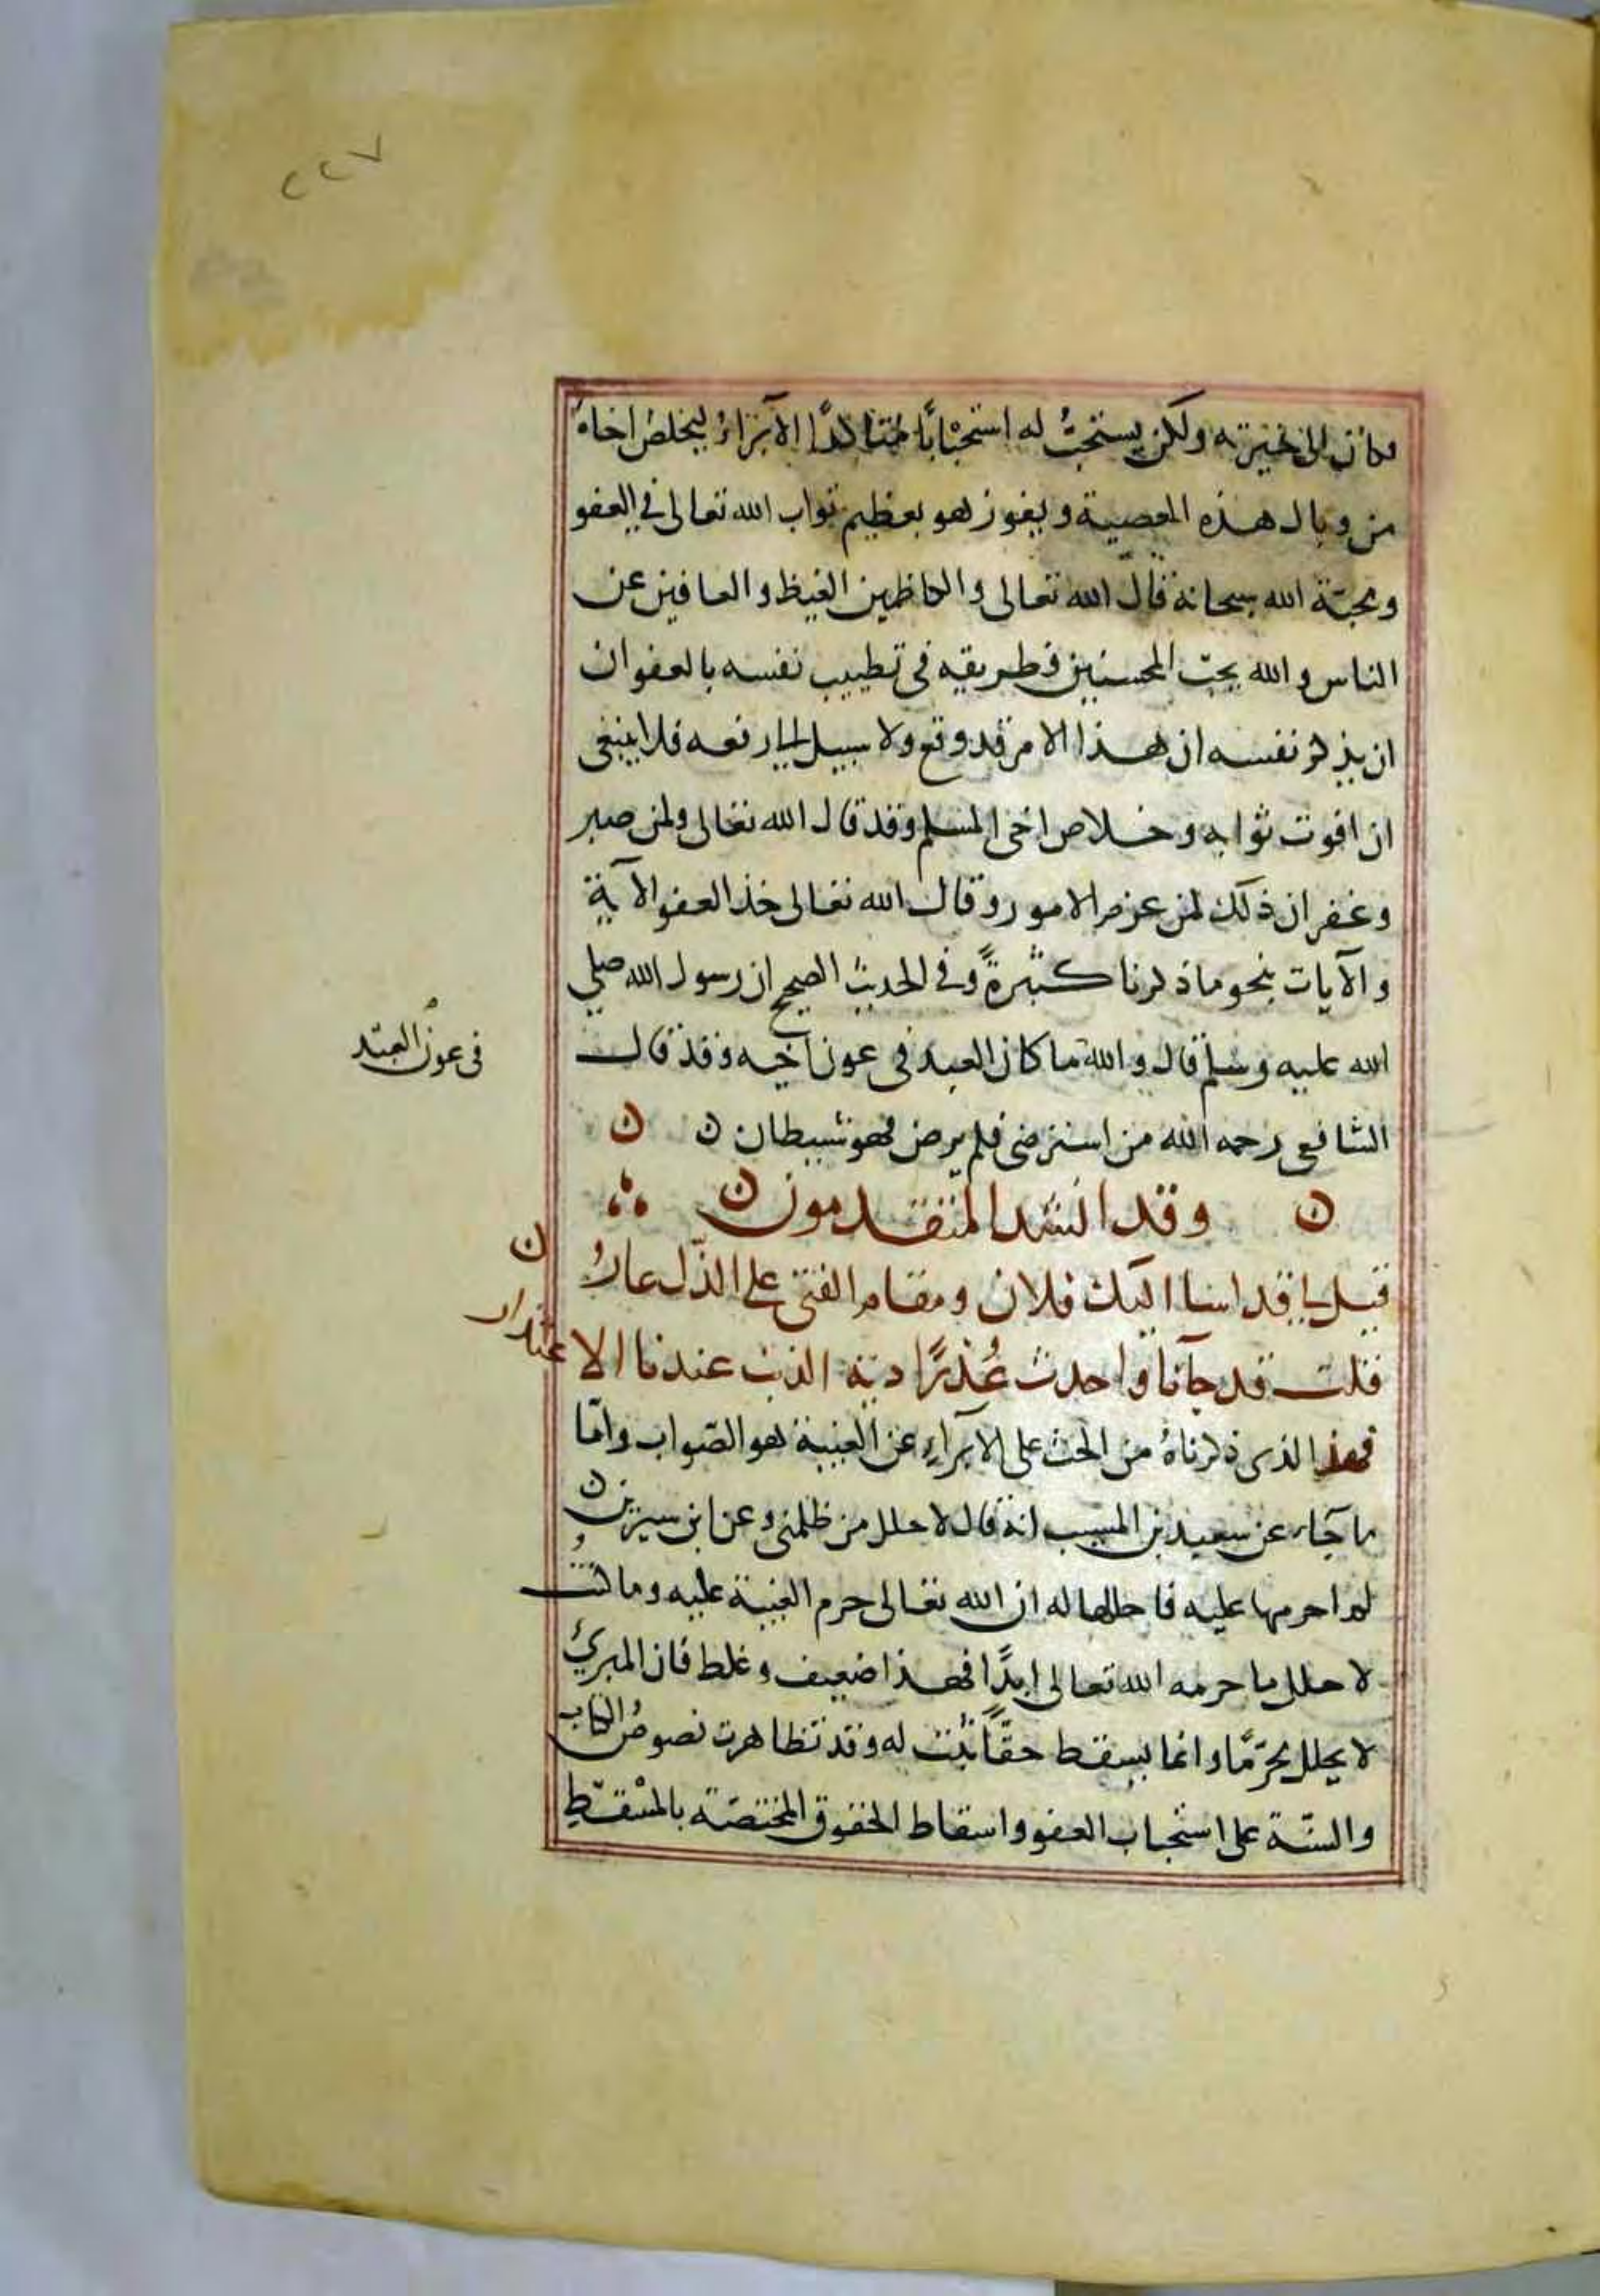 ٢٢٧
فكان الى خيرته ولكن يستحبُّ له استحبْابًا مُتاكدًا الآبراءُ ليخلصُ اخاهُ
من وبال هذه المعصية ويفوز هو بعظيم ثواب الله تعالى في العفو
ومحبّة الله سبحانه قال الله تعالى والكاظمين الغيظ والعافين عن
الناس والله يحبّ المحسنين فطريقه فى تطييب نفسه بالعفو ان
ان يذكر نفسه ان هذا الامر قد وقع ولا سبيل الى رفعه فلا ينبغى
ان افوت ثوابه وخلاص اخى المسلم وقد قال الله تعالى ولمن صبر
وغفر ان ذلك لمن عزم الامور وقال الله تعالى خذ العفو الآية
والآيات بنحو ما ذكرنا كثيرةً وفى الحديث الصحيح ان رسول الله صلى
الله عليه وسلم قال والله ما كان العبد فى عون اخيه وقد قال
فى عون العبد
الشافعى رحمه الله من استرضى فلم يرض فهو شيطان ن ن
ن وقد انشد المتقدمون ن
قيل لى قد اسا اليك فلان ومقام الفتى على الذّل عارُ ن
قلت قد جآنا واحدث عُذرًا دية الذنب عندنا الاعتذار
فهذا الذى ذكرناهُ من الحث على الابرآءِ عن الغيبة هو الصّواب وامّا
ما جآء عن سعيد بن المسيب انه قال لا احلل من ظلمنى وعن ابن سيرين
لم احرمها عليه فاحللها له ان الله تعالى حرم الغيبة عليه وما كنتُ
لا حلل ما حرمه الله تعالى ابدًا فهذا ضعيف وغلط فان المبرئُ
لا يحلل محرّمًا وانما يسقط حقًا ثبت له وقد تظاهرت نصوصُ الكتاب
والسنّة على استحباب العفو واسقاط الحقوق المختصّة بالمسْقِطِ